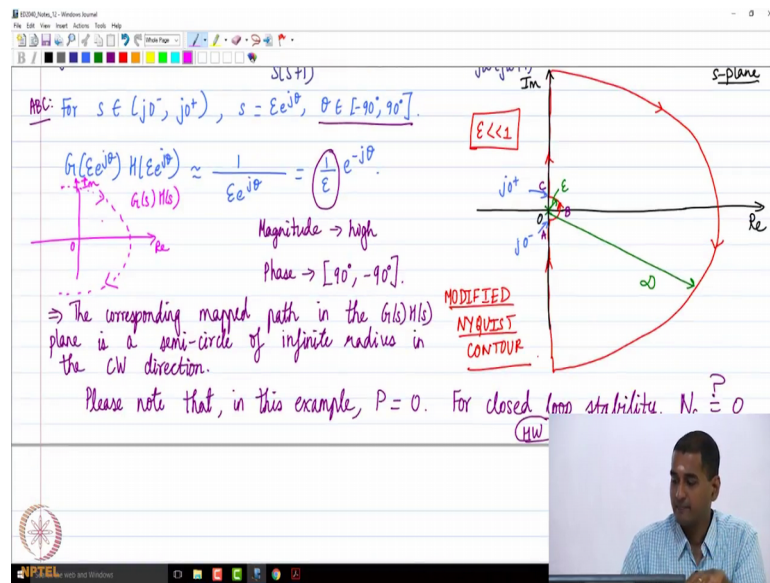 ED2040_Notes_12 - Windows Journal
File Edit View Insert Actions Tools Help
Whole Page
B I
S(S+1)
ABC: For s ∈ (j0⁻, j0⁺), s = εe^{jθ}, θ ∈ [-90°, 90°].
G(εe^{jθ}) H(εe^{jθ}) ≈ 1/(εe^{jθ}) = (1/ε) e^{-jθ}.
Im
G(s)H(s)
0
Re
Magnitude → high
Phase → [90°, -90°].
⇒ The corresponding mapped path in the G(s)H(s)
plane is a semi-circle of infinite radius in
the CW direction.
Please note that, in this example, P = 0. For closed loop stability, N₀ ≟ 0
HW
Im
s-plane
ε<<1
j0⁺
C
ε
0
B
A
j0⁻
Re
∞
MODIFIED
NYQUIST
CONTOUR.
NPTEL